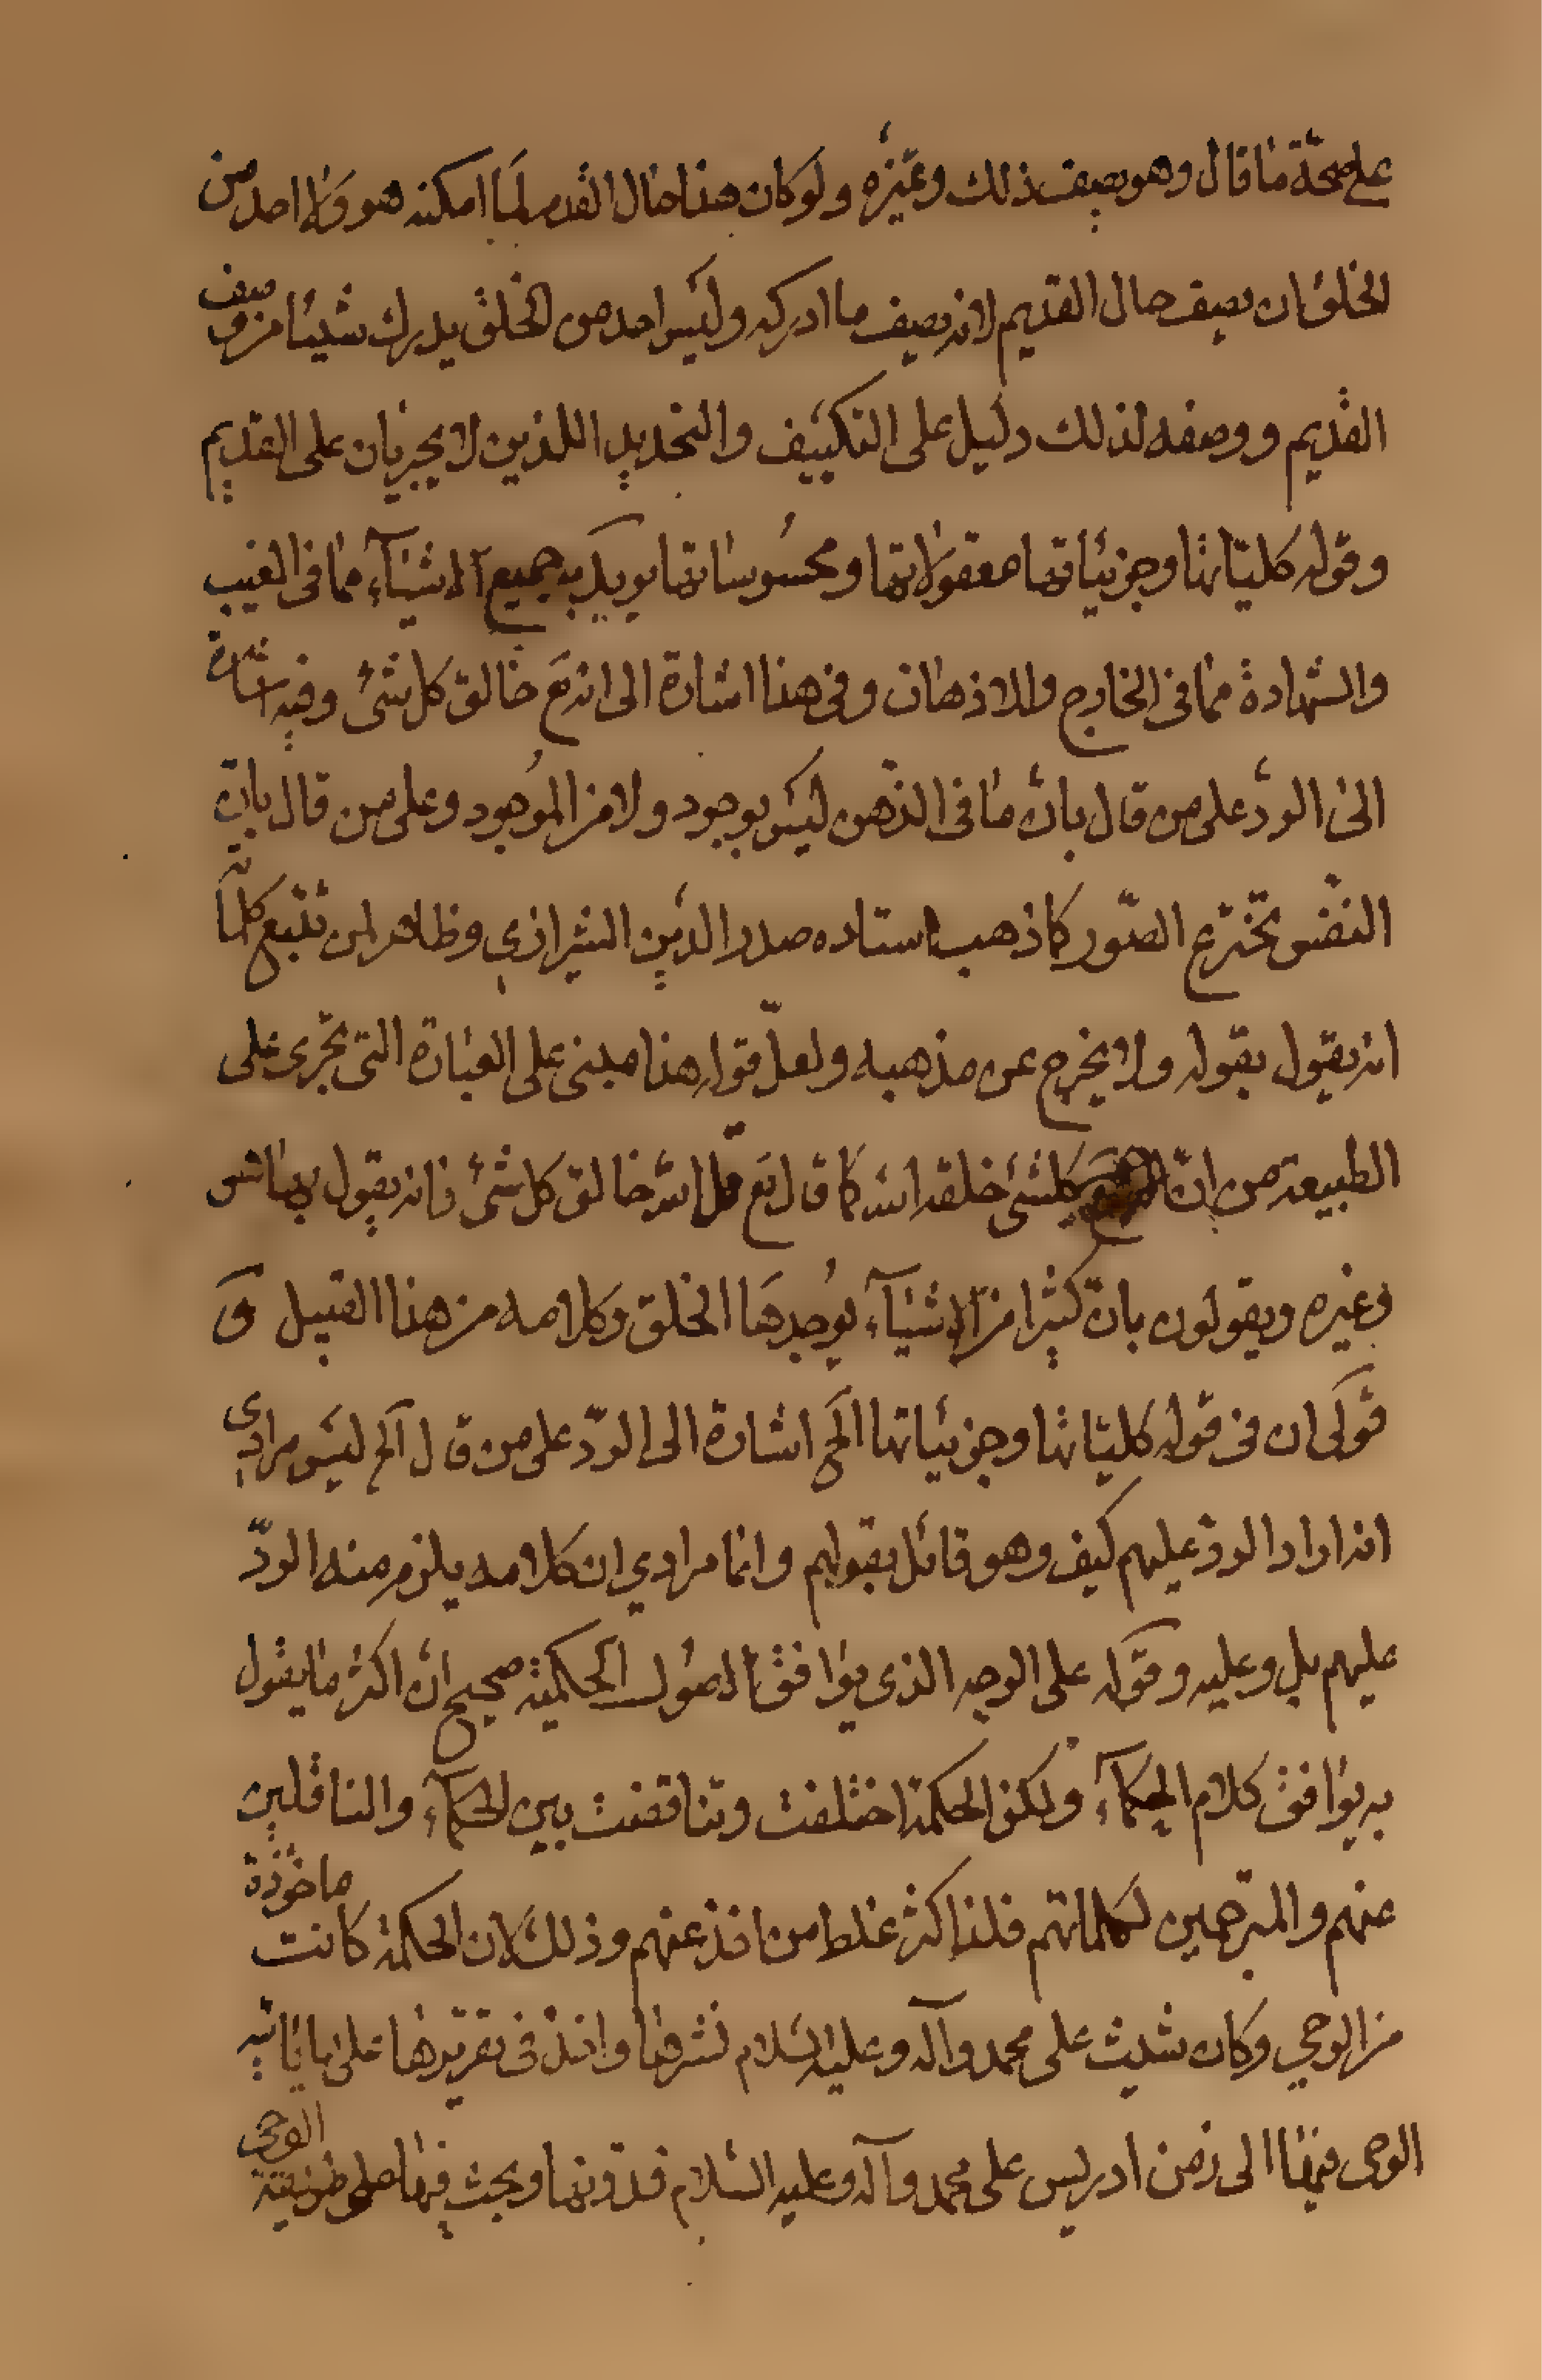 على صحّة ما قال وهو يصف ذلك وغيره ولو كان هذا حال القدم لما امكنه هو ولا احد من
الخلق ان يصف حال القديم لانه يصف ما ادركه وليس احد من الخلق يدرك شيئا من وصف
القديم ووصفه لذلك دليل على التكييف والتحديد اللذين لا يجريان على القديم
وقوله كليّاتها وجزئياتها معقولاتها ومحسوساتها يريد به جميع الاشيآء مما فى الغيب
والشهادة مما فى الخارج والاذهان وفى هذا اشارة الى انه تع خالق كل شئ وفيه اشارة
الى الردّ على من قال بان ما فى الذهن ليس بوجود ولا من الموجود وعلى من قال بان
النفس تخترع الصّور كما ذهب استاده صدر الدين الشيرازي وظاهر لمن تتبع كلماته
انه يقول بقوله ولا يخرج عن مذهبه ولعلّ قوله هذا مبنى على العبارة التى تجرى على
الطبيعة من انّ كلشئ خلقه الله كما قال تع قل الله خالق كل شئ فانه يقول بها الناس
وغيره ويقولون بان كثيرا من الاشيآء يوجدها الخلق وكلامه من هذا القبيل و
قولى ان فى قوله كليّاتها وجزئياتها الخ اشارة الى الردّ على من قال الخ ليس مرادى
انه اراد الردّ عليهم كيف وهو قائل بقولهم وانما مرادي ان كلامه يلزم منه الردّ
عليهم بل وعليه وقوله على الوجه الذى يوافق الاصول الحكمية صحيح ان اكثر ما يقول
به يوافق كلام الحكمآء ولكن الحكمة اختلفت وتناقضت بين الحكمآء والناقلين
عنهم والمترجمين لكلماتهم فلذا كثر غلط من اخذ عنهم وذلك لان الحكمة كانت ماخوذة
من الوحي وكان شيث على محمد وآله وعليه السلام نشرها واخذ فى تقريرها على ما ياتيه
الوحى فيها الى زمن ادريس على محمد وآله وعليه السلام فدوّنها وبحث فيها على طريقة الوحى